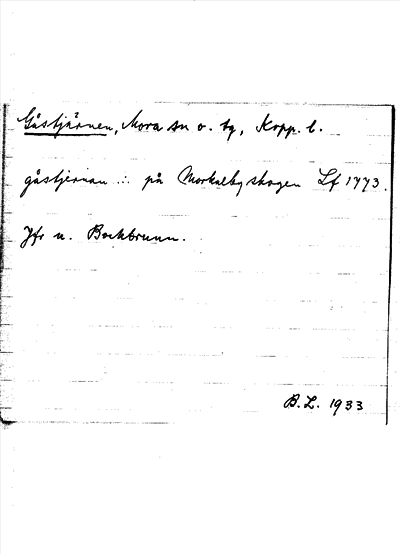 Gåstjärnen, Mora sn o. tg, Kopp. l.
gåstjernan .:. på Morkarlbyskogen Lf 1773.
Jfr u. Bockbrunn.
B.L. 1933